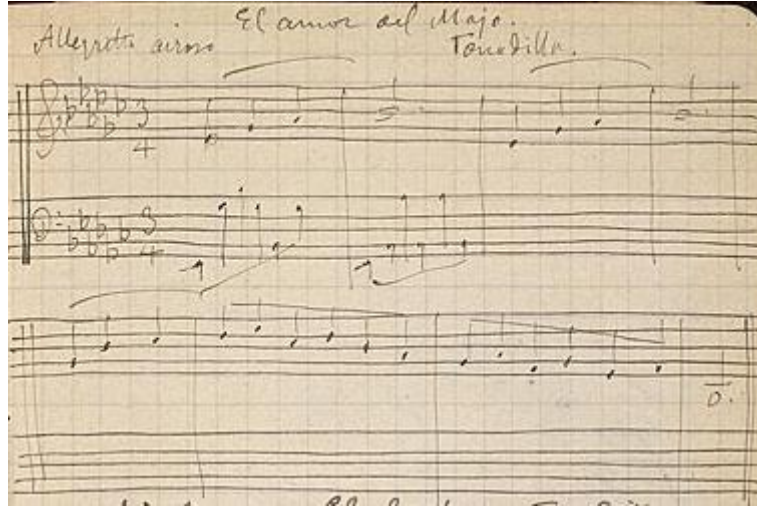 El amor del Majo.
Allegretto airoso Tonadilla.
3
4
3
4